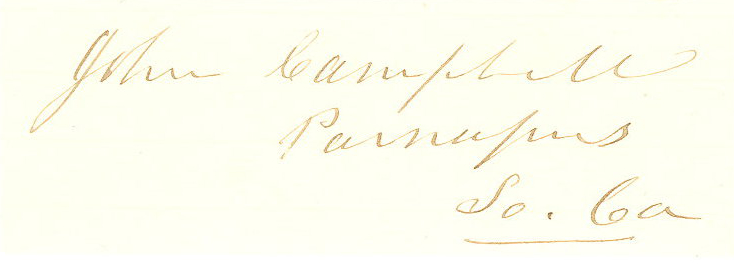 John Campbell
Parnassus
So. Ca